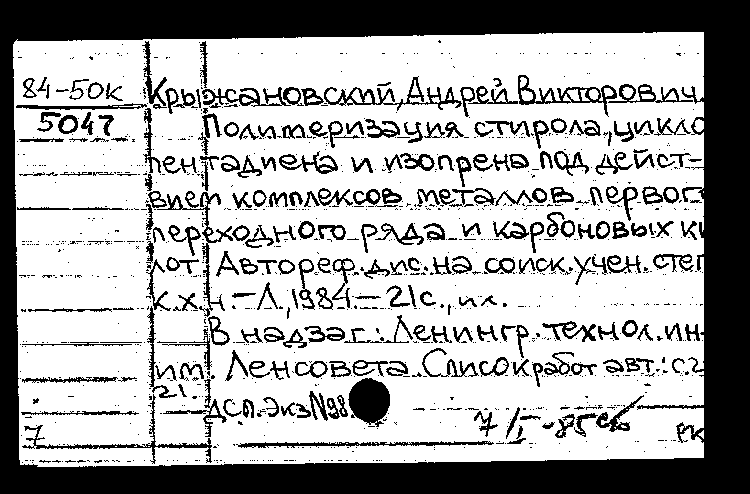 84-50к Крыжановский, Андрей Викторович.
5047 Полимеризация стирола, цикло
пентадиена и изопрена под дейст-
вием комплексов металлов первого
переходного ряда и карбоновых ки
лот Автореф. дис. на соиск. учен. степ
к.х.н. - Л., 1984 - 21с., ил.
В надзаг.: Ленингр. технол. ин-
им. Ленсовета. Список работ авт.: с.2
21.
ДСП. Экз N98
7 7/I-85
РК